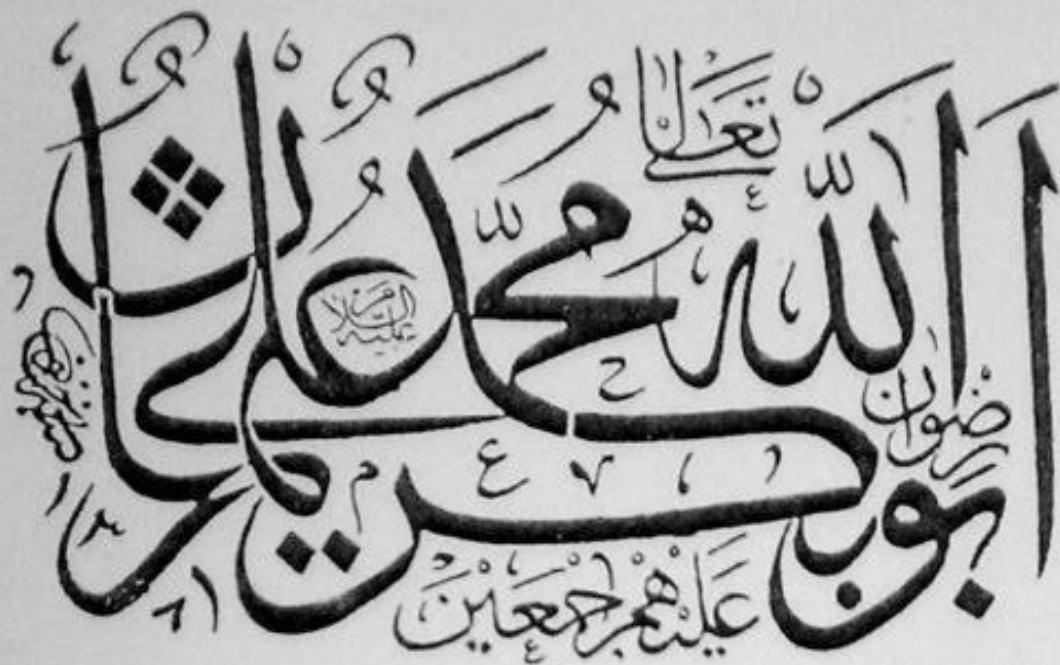 الله تعالى
محمد عليه السلام
ابو بكر عمر عثمان على
رضوان الله عليهم اجمعين